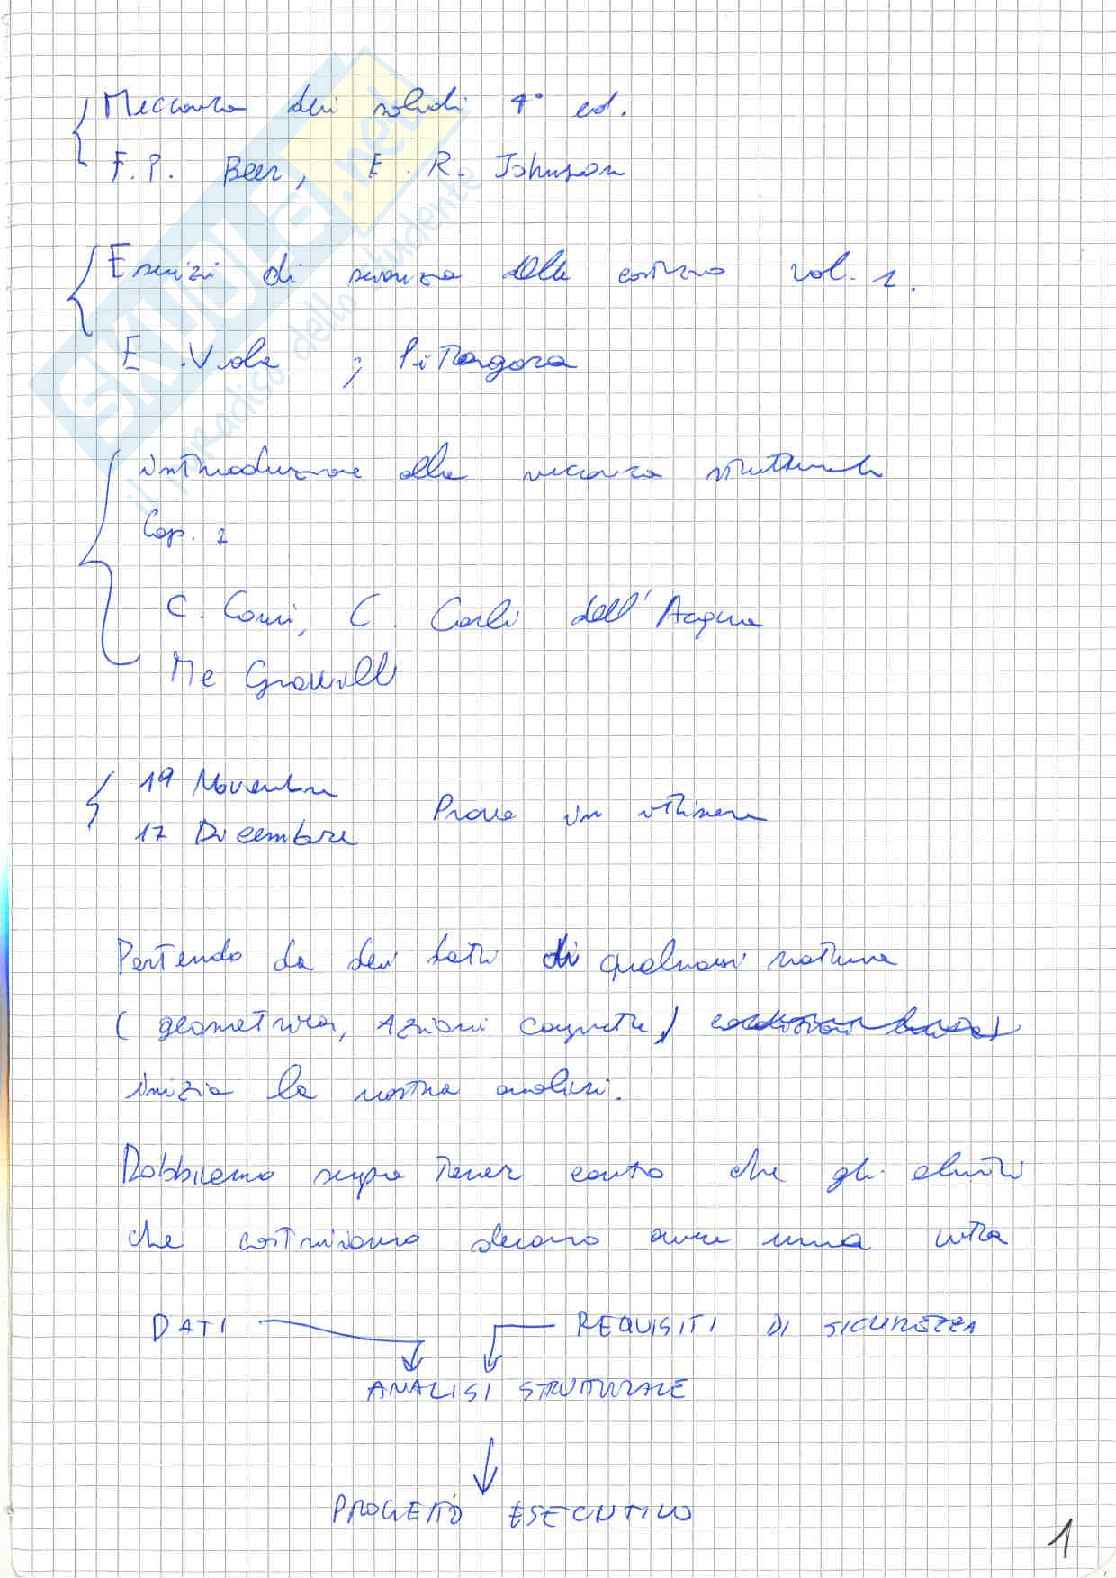 Meccanica dei solidi 4° ed.
F.P. Beer, E. R. Johnson
Esercizi di scienza delle costruz vol. 1.
E. Viola ; Pitagora
introduzione alla meccanica strutturale
Cap. 1
C. Comi, C. Corradi dell'Acqua
Mc Grawill
19 Novembre
17 Dicembre
Prove in itinere
Partendo da dei dati di qualsiasi natura
(geometrica, Azioni
inizia la nostra analisi.
Dobbiamo sempre tener conto che gli elementi
che costruiamo devono avere una vita
DATI
REQUISITI DI SICUREZZA
ANALISI STRUTTURALE
PROGETTO ESECUTIVO
1
SKUOLA.net
il paradiso dello studente